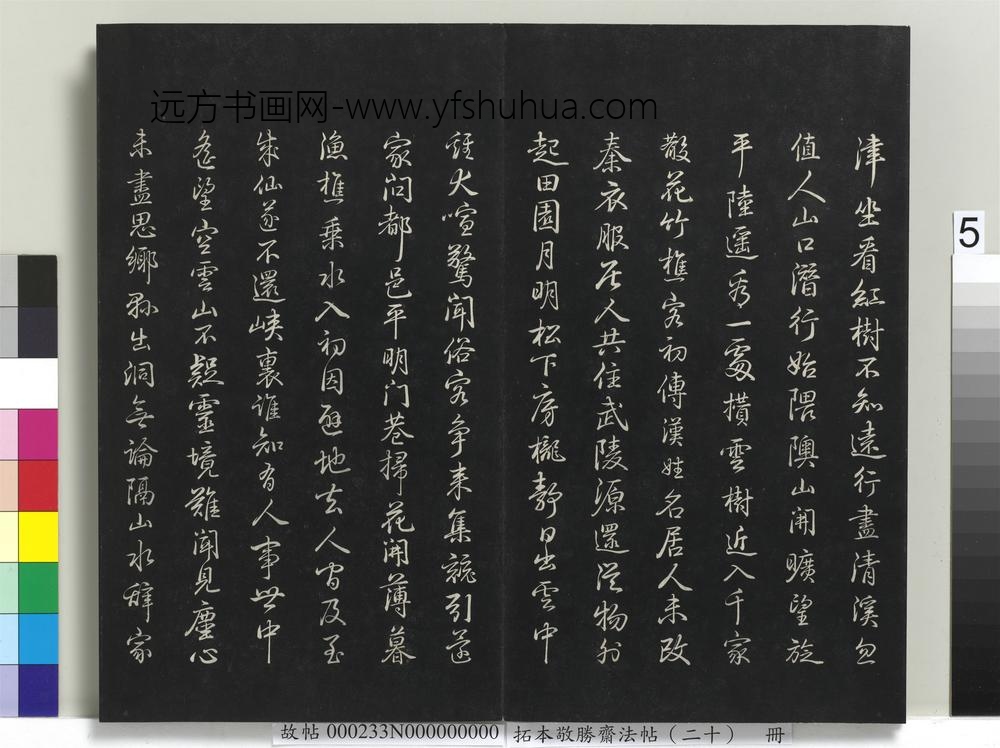 远方书画网-www.yfshuhua.com
津坐看紅樹不知遠行盡清溪忽
值人山口潛行始隈隩山開曠望旋
平陸遙看一處攢雲樹近入千家
散花竹樵客初傳漢姓名居人未改
秦衣服居人共住武陵源還從物外
起田園月明松下房櫳靜日出雲中
雞犬喧驚聞俗客爭來集競引還
家問都邑平明門巷掃花開薄暮
漁樵乘水入初因避地去人間及至
成仙遂不還峽裏誰知有人事世中
遙望空雲山不疑靈境難聞見塵心
未盡思鄉縣出洞無論隔山水辭家
5
故帖 000233N000000000 拓本敬勝齋法帖（二十） 冊